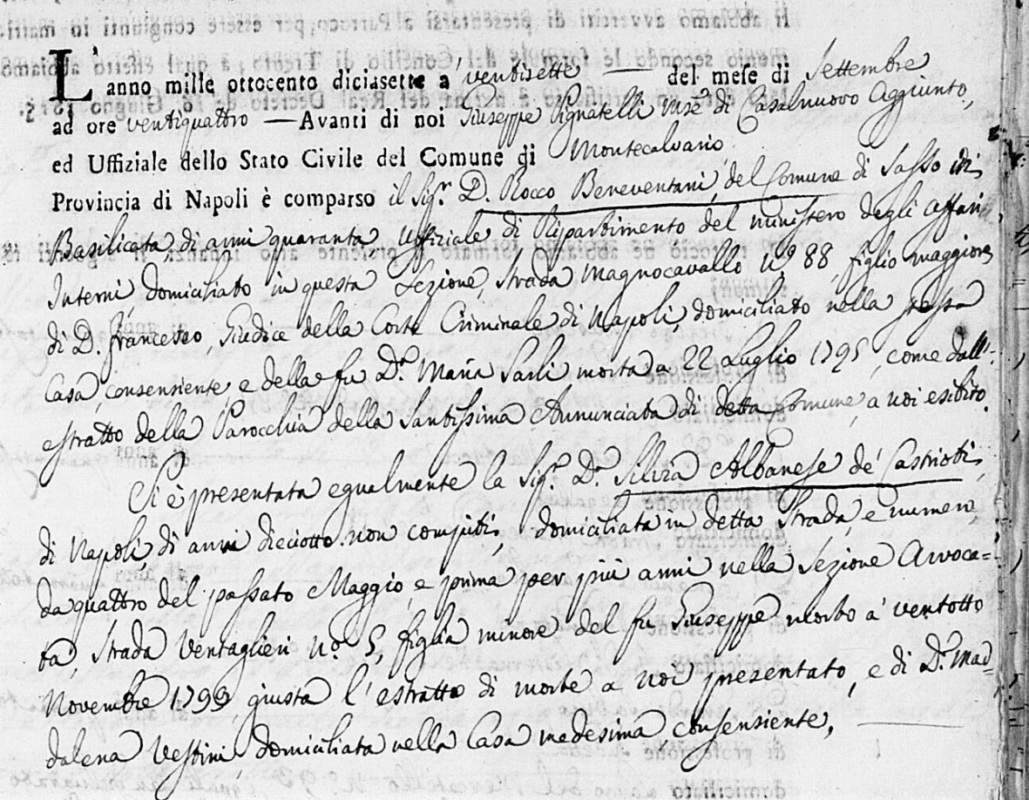 L'anno mille ottocento diciasette a ventisette — del mese di Settembre
ad ore ventiquattro — Avanti di noi Giuseppe Pignatelli M.se di Casalnuovo Aggiunto,
ed Uffiziale dello Stato Civile del Comune di Montecalvario
Provincia di Napoli è comparso il Sig.r D. Rocco Beneventani, del Comune di Sasso in
Basilicata, di anni quaranta, Uffiziale di Ripartimento del ministero degli Affari
Interni, domiciliato in questa Sezione, strada Magnocavallo n.° 88, figlio maggiore
di D. Francesco, Giudice della Corte Criminale di Napoli, domiciliato nella stessa
Casa, consensiente, e della fu D.a Maria Sarli morta a 22 Luglio 1795, come dall'
estratto della Parocchia della Santissima Annunciata di detta Comune, a noi esibito.
Si è presentata egualmente la Sig.ra D.a Silvia Albanese de' Castrioti,
di Napoli, di anni dieciotto non compiti, domiciliata in detta Strada, e numero,
da quattro del passato Maggio, e prima per più anni nella Sezione Avvoca-
ta, strada Ventaglieri n.° 5, figlia minore del fu Giuseppe morto a' ventotto
Novembre 1799, giusta l'estratto di morte a noi presentato, e di D.a Mad
dalena Vestini, domiciliata nella Casa medesima, consensiente,